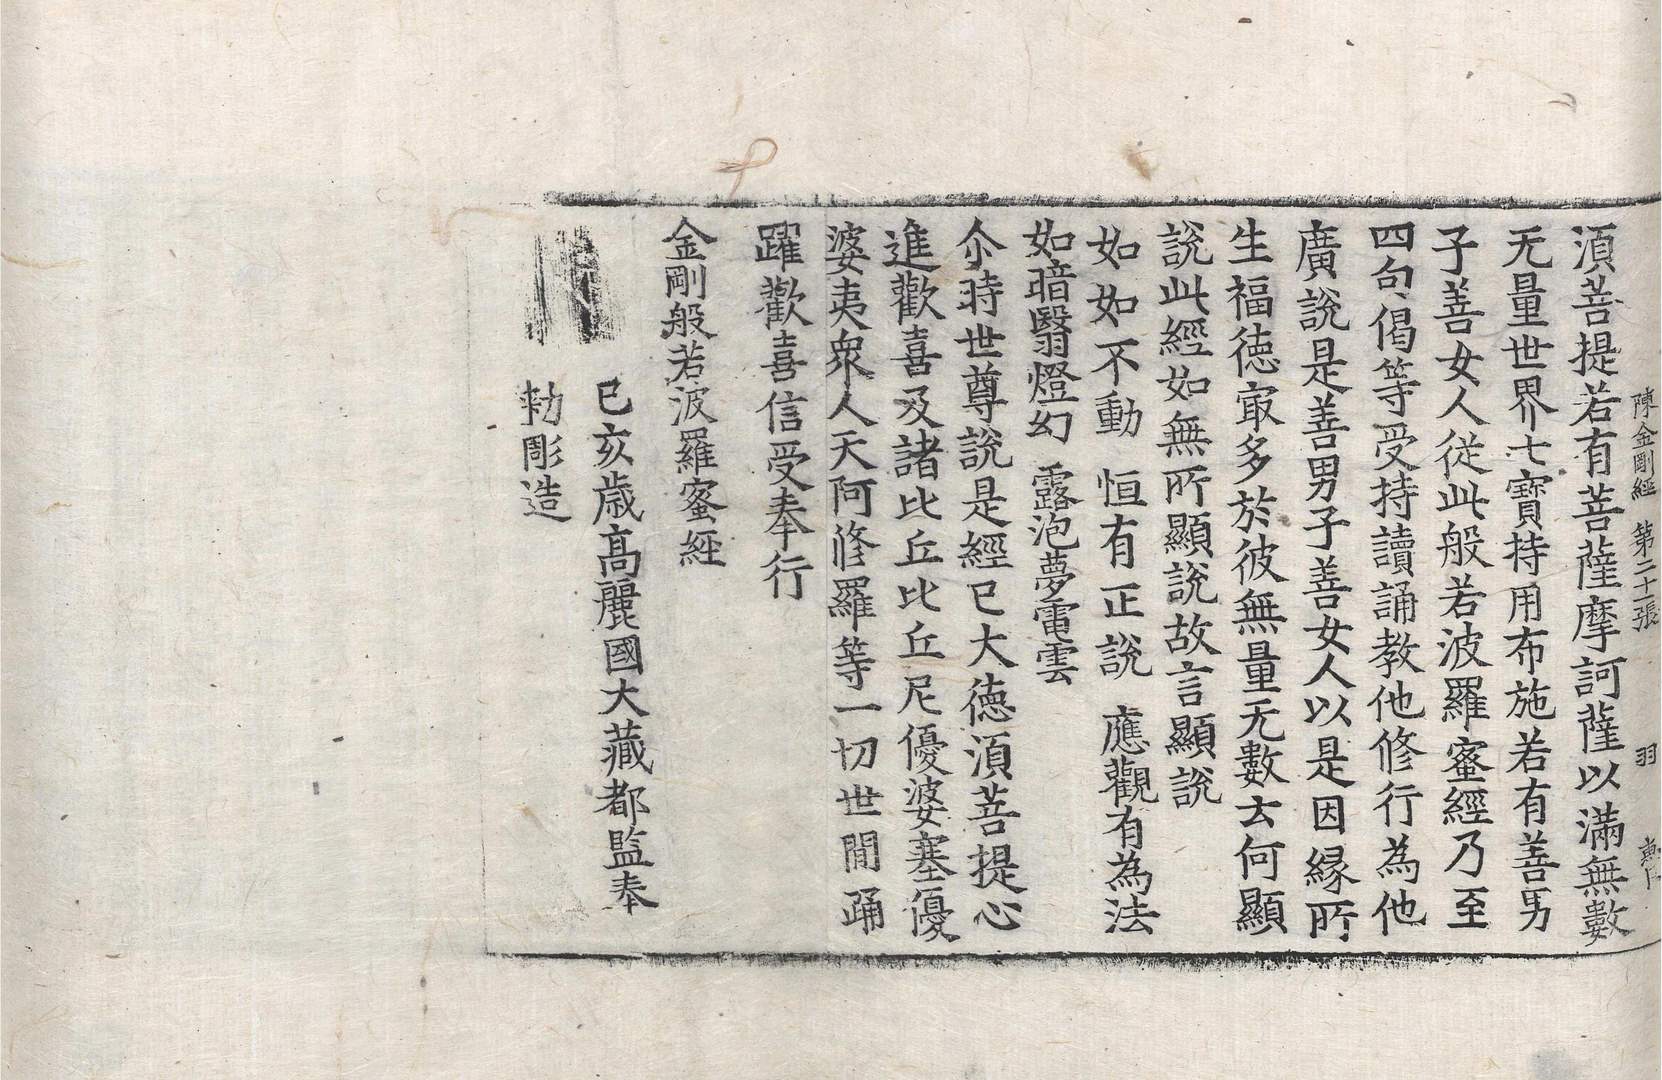 陳金剛經 第二十張 羽
湏菩提若有菩薩摩訶薩以滿無數
无量世界七寶持用布施若有善男
子善女人從此般若波羅蜜經乃至
四句偈等受持讀誦教他修行為他
廣說是善男子善女人以是因縁所
生福德㝡多於彼無量无數云何顯
說此經如無所顯說故言顯說
如如不動 恒有正說 應觀有為法
如暗翳燈幻 露泡夢電雲
尒時世尊說是經已大德湏菩提心
進歡喜及諸比丘比丘尼優婆塞優
婆夷衆人天阿修羅等一切世間踊
躍歡喜信受奉行
金剛般若波羅蜜經
己亥歲髙麗國大藏都監奉
勅彫造